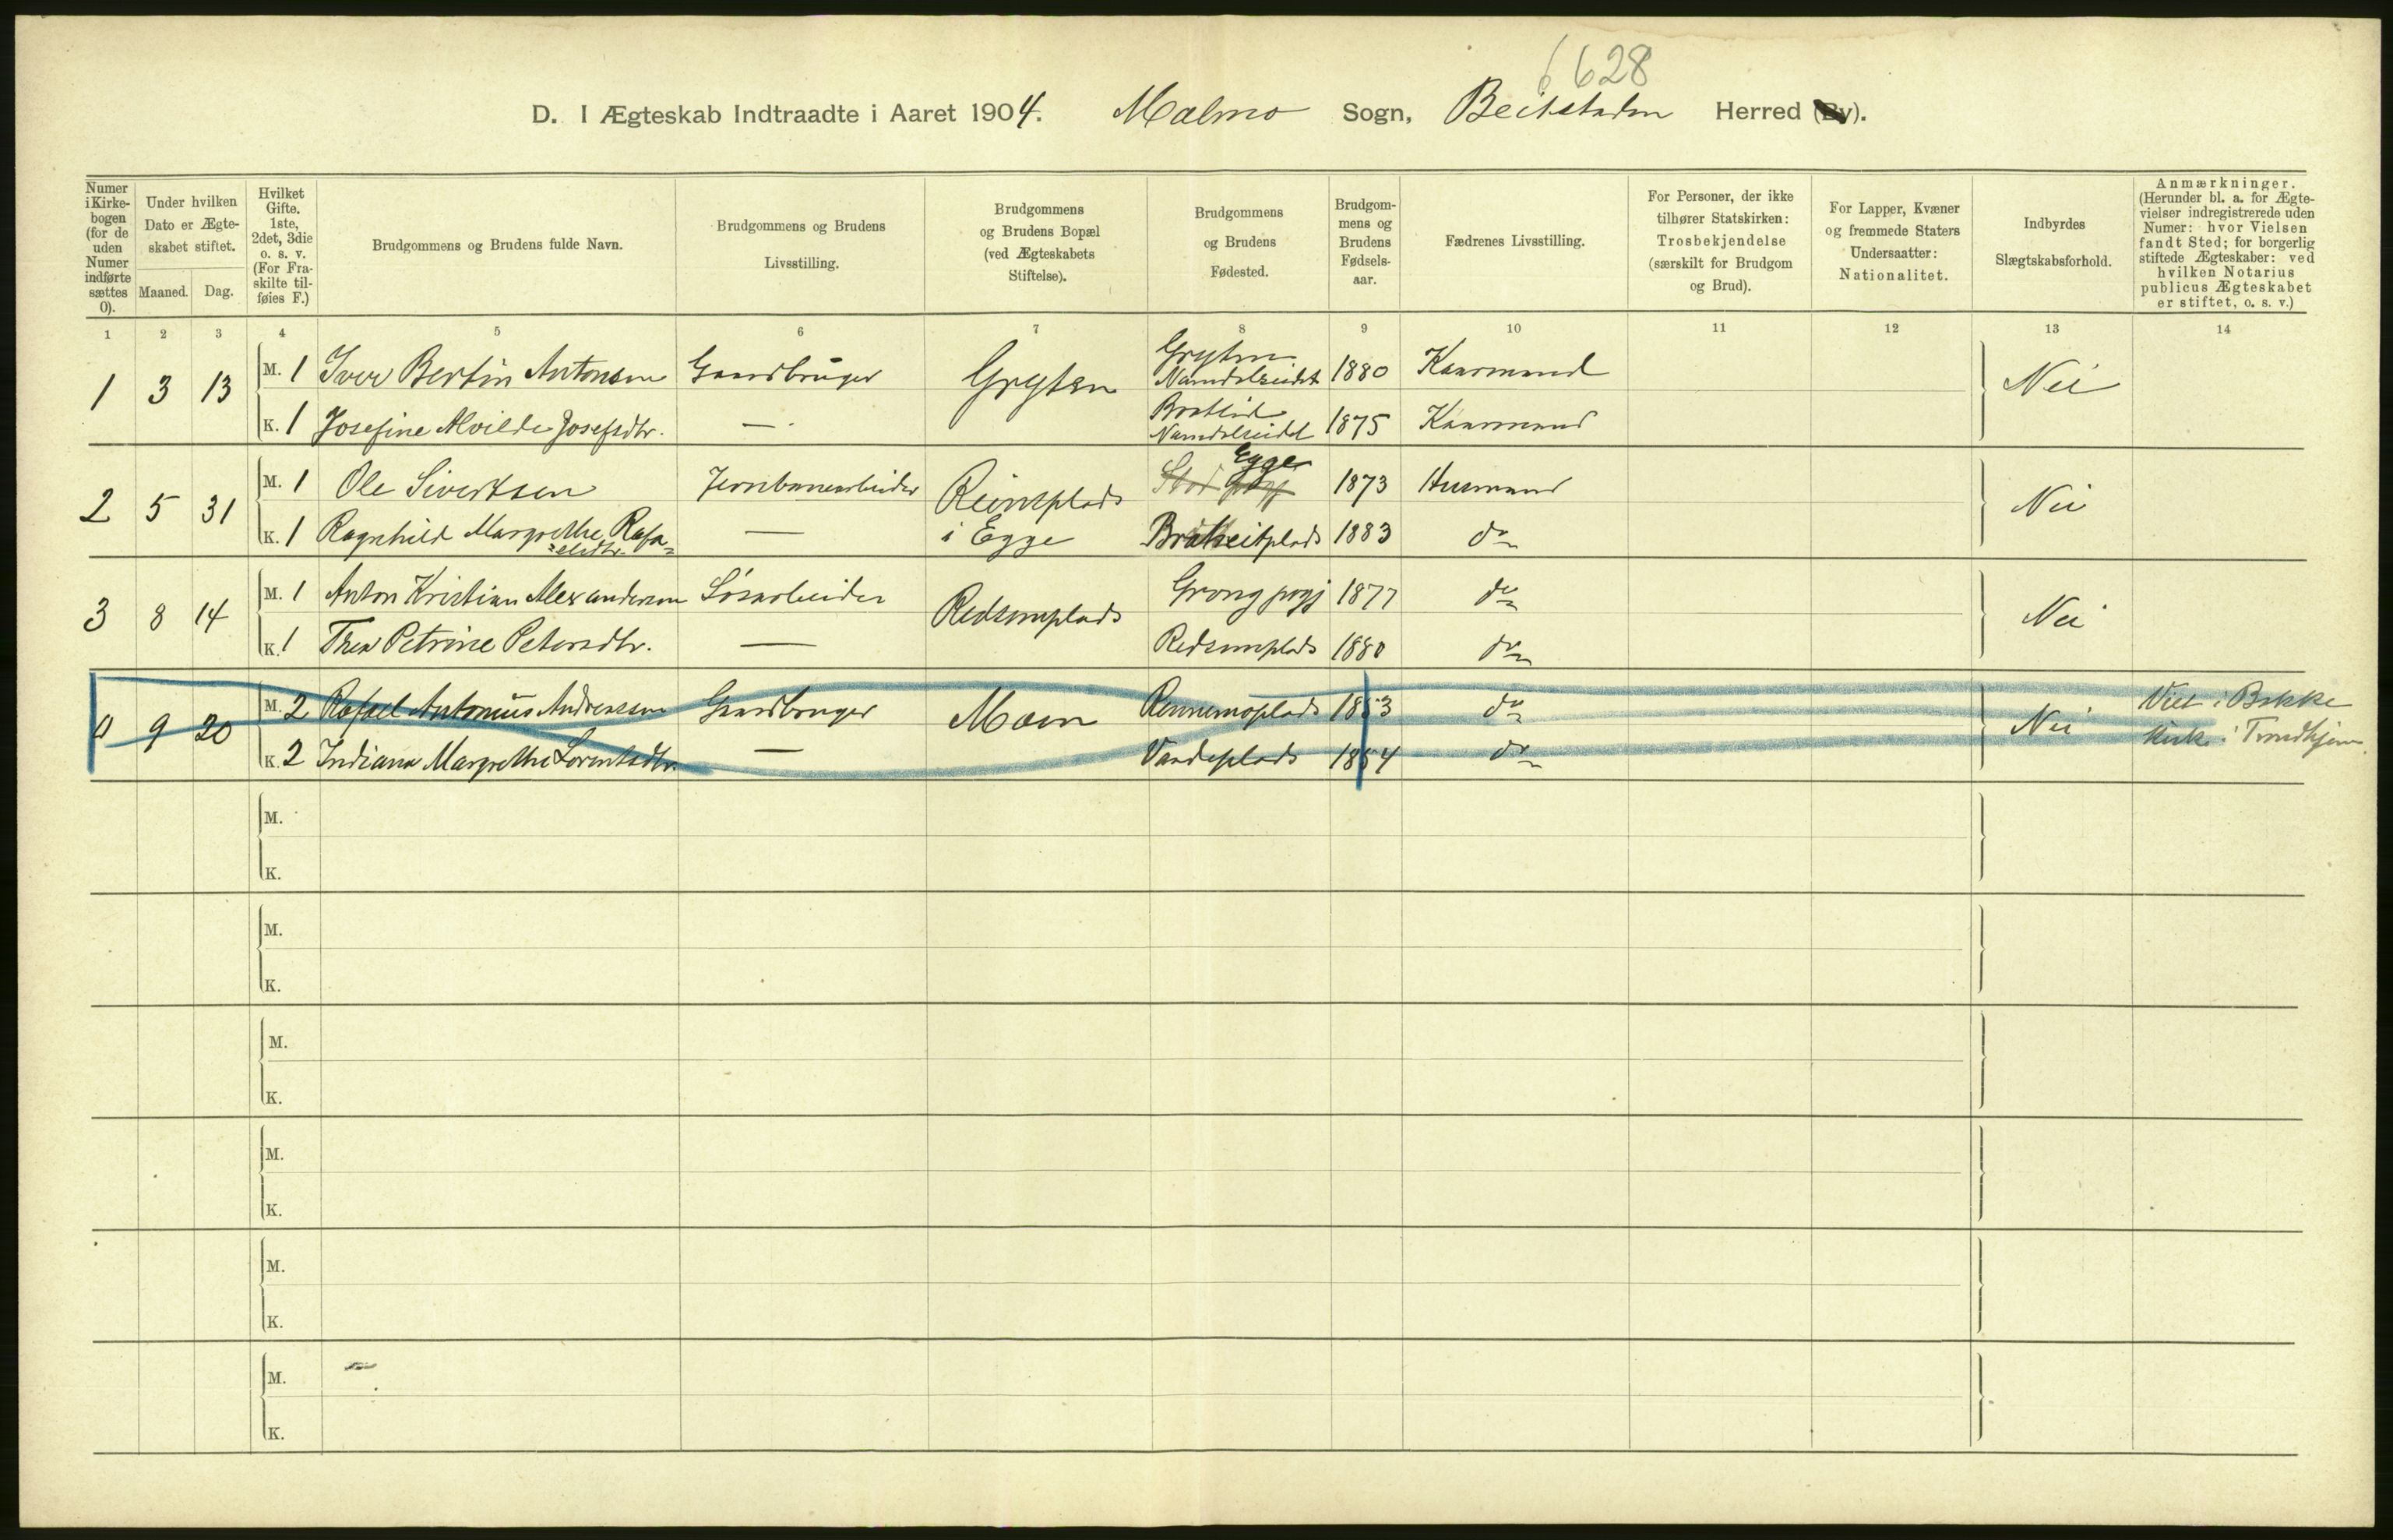 6628
D. I Ægteskab Indtraadte i Aaret 1904. Malmo Sogn, Beitstaden Herred (By).
Numer i Kirkebogen (for de uden Numer indførte sættes 0).
Under hvilken Dato er Ægteskabet stiftet.
Maaned. Dag.
Hvilket Gifte. 1ste, 2det, 3die o. s. v. (For Fraskilte tilføies F.)
Brudgommens og Brudens fulde Navn.
Brudgommens og Brudens Livsstilling.
Brudgommens og Brudens Bopæl (ved Ægteskabets Stiftelse).
Brudgommens og Brudens Fødested.
Brudgommens og Brudens Fødselsaar.
Fædrenes Livsstilling.
For Personer, der ikke tilhører Statskirken: Trosbekjendelse (særskilt for Brudgom og Brud).
For Lapper, Kvæner og fremmede Staters Undersaatter: Nationalitet.
Indbyrdes Slægtskabsforhold.
Anmærkninger. (Herunder bl. a. for Ægtevielser indregistrerede uden Numer: hvor Vielsen fandt Sted; for borgerlig stiftede Ægteskaber: ved hvilken Notarius publicus Ægteskabet er stiftet, o. s. v.)
1 2 3 4 5 6 7 8 9 10 11 12 13 14
1 3 13 M. 1 Iver Bertin Antonsen Gaardbruger Gryten Gryten Namdalseidet 1880 Gaardmand Nei
K. 1 Josefine Alvilde Josefsdtr. — Namdalseidet 1875 Gaardmand
2 5 31 M. 1 Ole Sivertsen Jernbanearbeider Reinsplads i Egge Stod Egge 1873 Husmand Nei
K. 1 Ragnhild Margrethe Rafaelsdtr. — 1883 do
3 8 14 M. 1 Anton Kristian Alexandersen Løsarbeider Redsemplads Grong pgj 1877 do Nei
K. 1 Thea Petrine Petersdtr. — Redsemplads 1880 do
0 9 20 M. 2 Rafael Antonius Andreassen Gaardbruger Moen Rennemoplads 1853 do Nei Viet i Bakke
K. 2 Indiana Margrethe Lorentsdtr. — 1854 do Kirke i Trondhjem.
M.
K.
M.
K.
M.
K.
M.
K.
M.
K.
M.
K.